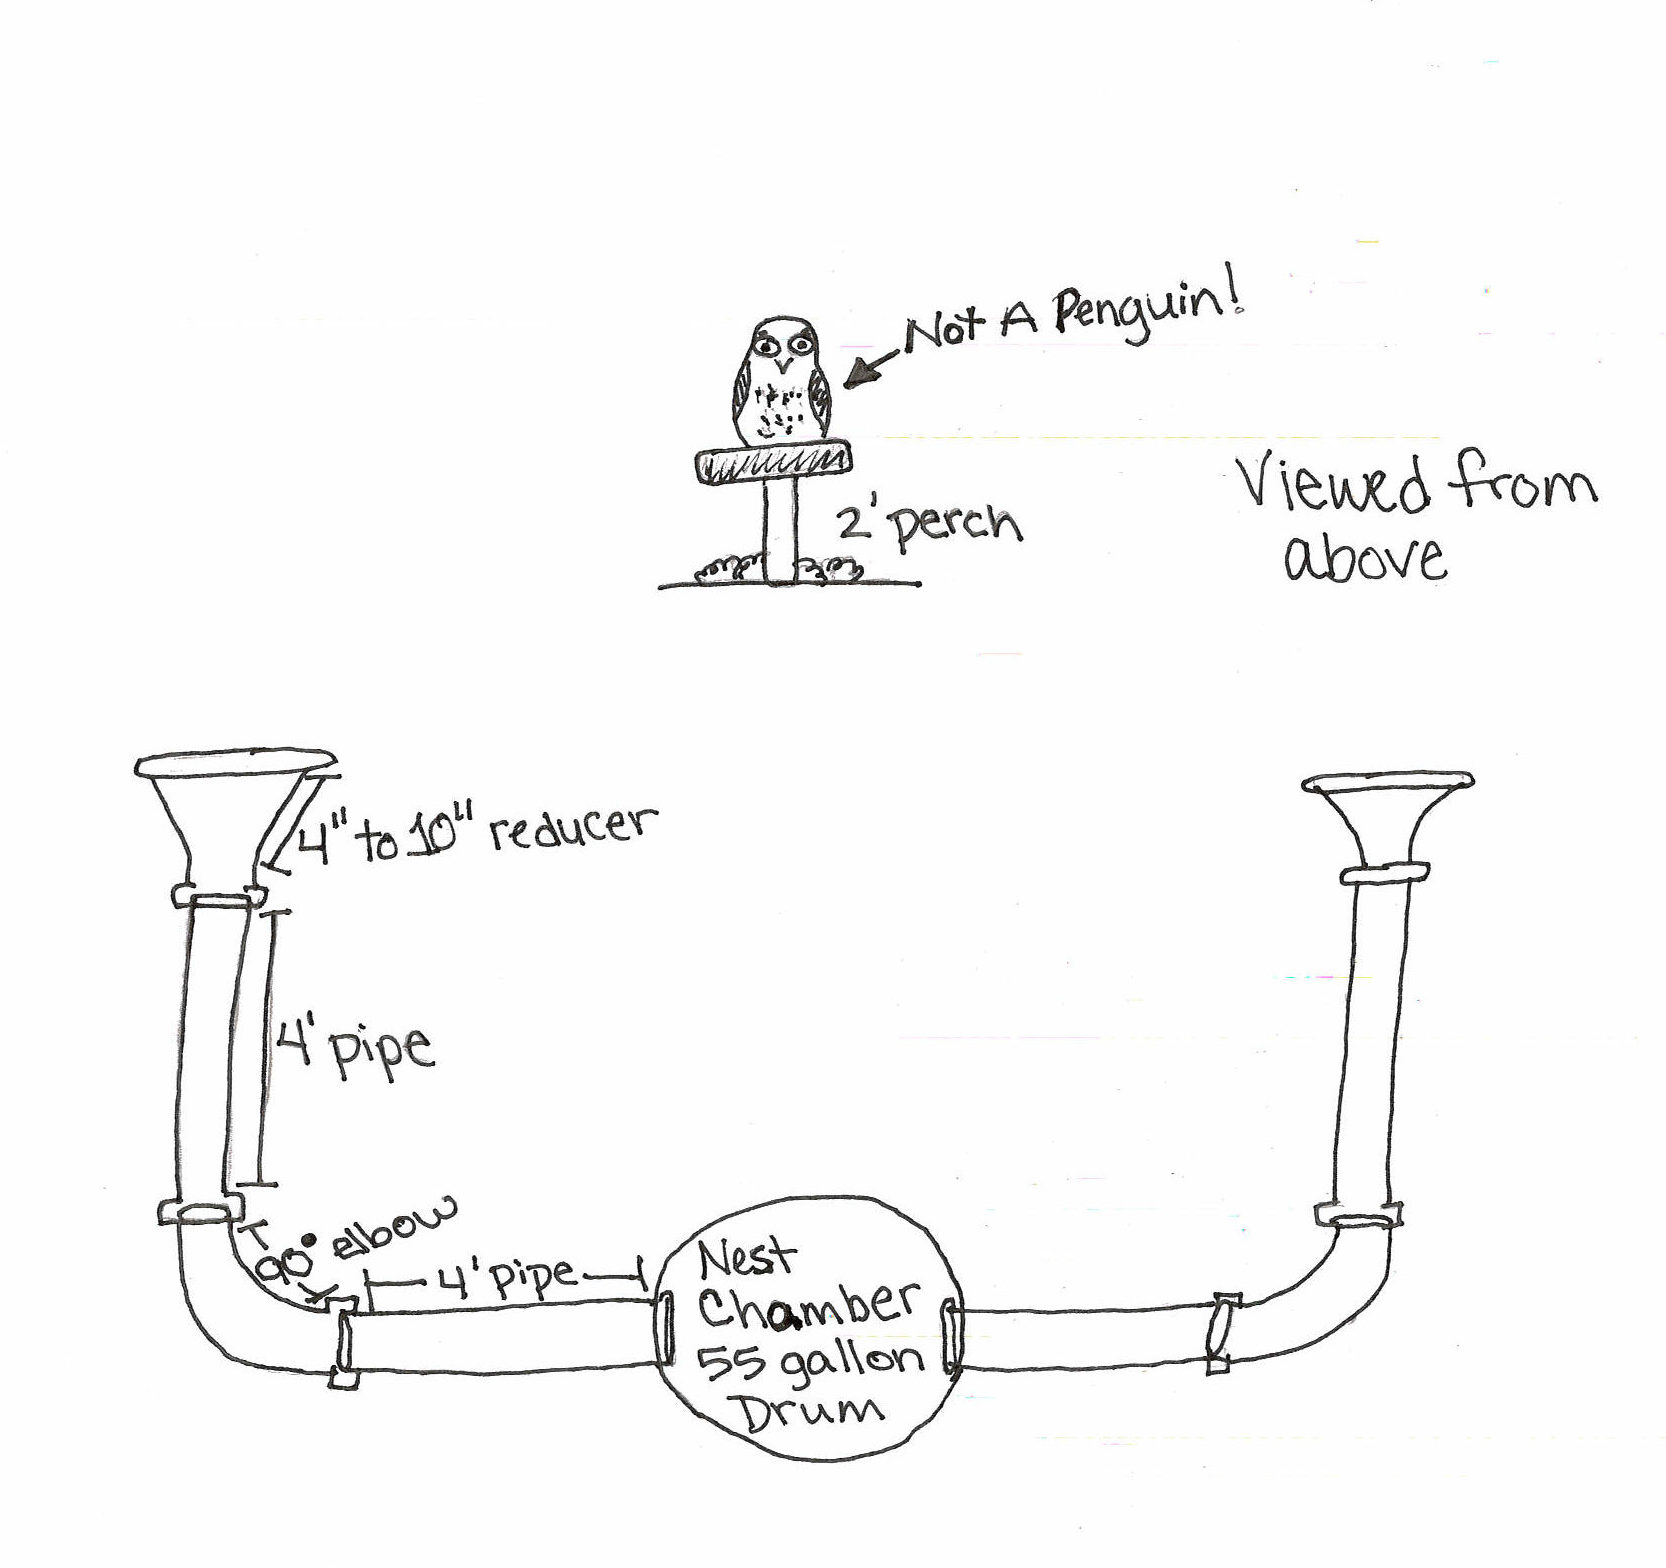 Not A Penguin!
Viewed from
above
2' perch
4" to 10" reducer
4' pipe
90° elbow
4' pipe
Nest
Chamber
55 gallon
Drum